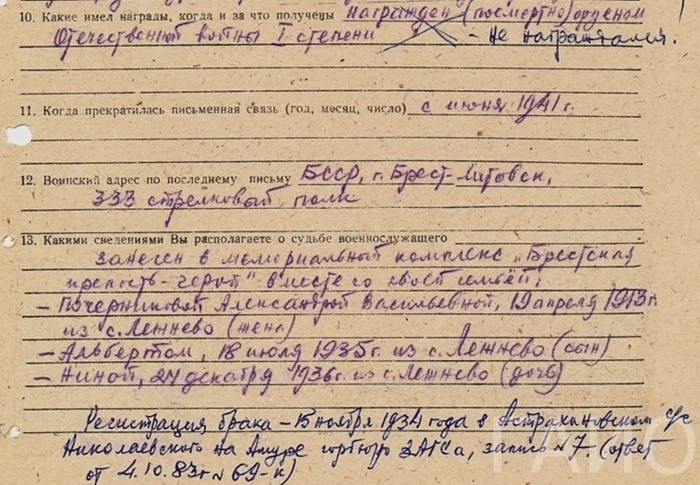 10. Какие имел награды, когда и за что получены награжден (посмертно) орденом
Отечественной войны I степени - не награждался.
11. Когда прекратилась письменная связь (год, месяц, число) с июня 1941 г.
12. Воинский адрес по последнему письму БССР, г. Брест-Литовск,
333 стрелковый полк
13. Какими сведениями Вы располагаете о судьбе военнослужащего
занесен в мемориальный комплекс „Брестская
крепость-герой" вместе со своей семьёй:
- Почерниковой Александрой Васильевной, 19 апреля 1913 г.
из с. Лежнево (жена)
- Альбертом, 18 июля 1935 г. из с. Лежнево (сын)
- Ниной, 24 декабря 1936 г. из с. Лежнево (дочь)
Регистрация брака - 15 ноября 1934 года в Астрахановском с/с
Николаевского на Амуре горбюро ЗАГСа, запись № 7 (ответ
от 4.10.83 г № 69-к)
ГАИО